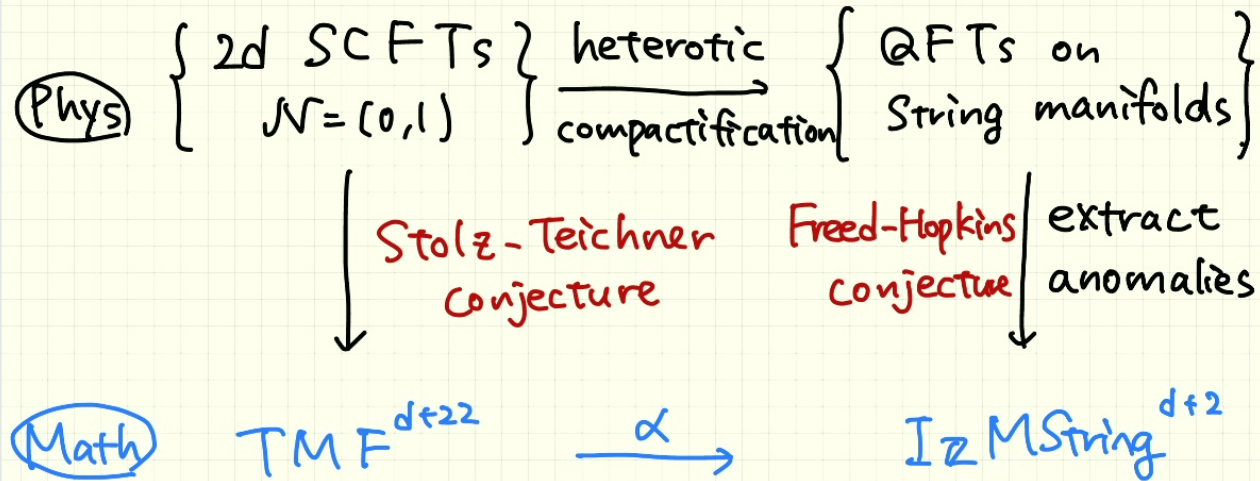 Phys
{ 2d SCFTs
N=(0,1) }
heterotic
compactification
{ QFTs on
String manifolds }
Stolz-Teichner
conjecture
Freed-Hopkins
conjectue
extract
anomalies
Math
TMF^{d+22}
α
I_Z MString^{d+2}